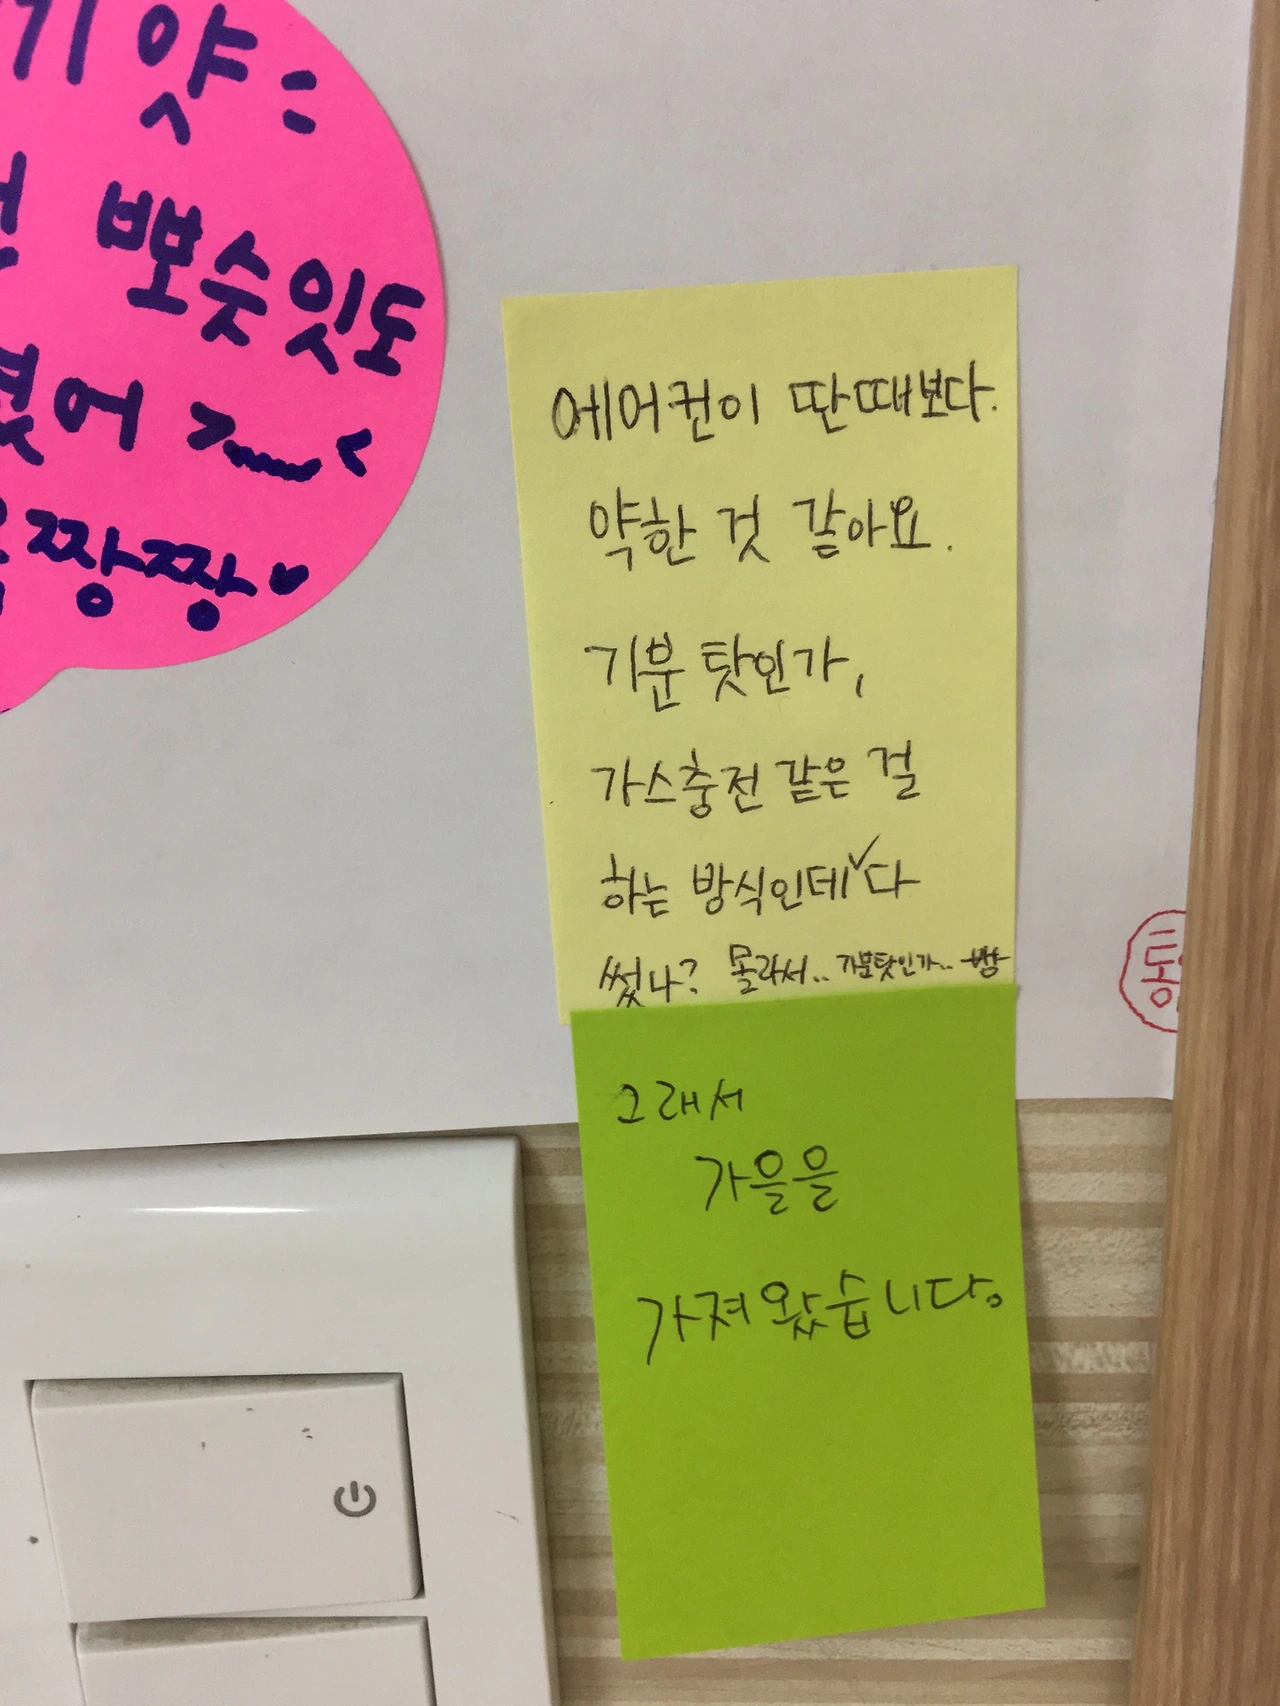 기얏:
뽀숏잇도
렸어 >﹏<
짱짱♥
에어컨이 딴때보다.
약한 것 같아요.
기분 탓인가,
가스충전 같은 걸
하는 방식인데✓다
썼나? 몰라서.. 기분탓인가..
그래서
가을을
가져왔습니다。